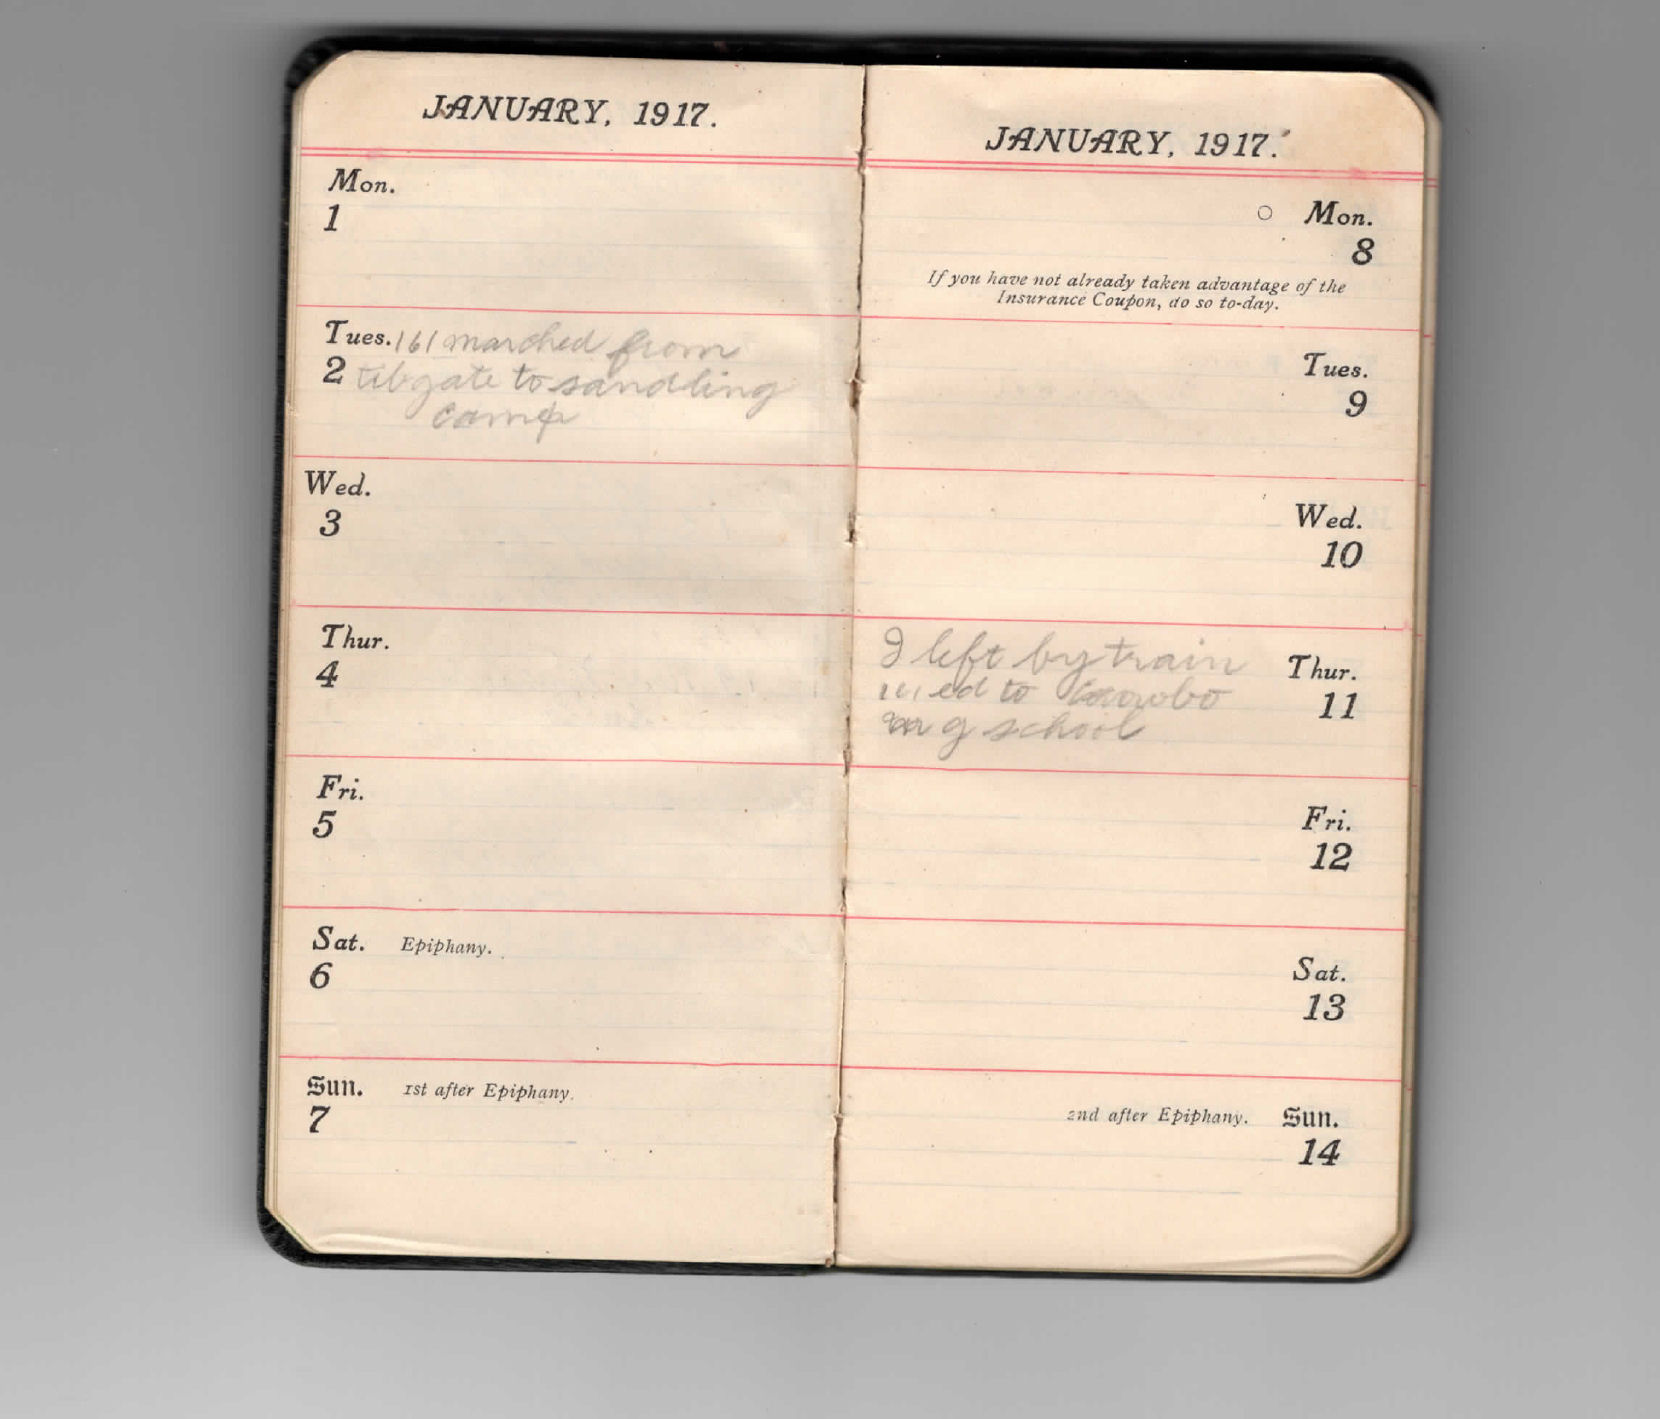 JANUARY, 1917.
Mon.
1
Tues. 161 marched from
2 tilbgate to sandling
camp
Wed.
3
Thur.
4
Fri.
5
Sat. Epiphany.
6
Sun. 1st after Epiphany.
7
JANUARY, 1917.
Mon.
8
If you have not already taken advantage of the
Insurance Coupon, do so to-day.
Tues.
9
Wed.
10
I left by train
Thur.
to
11
g school
Fri.
12
Sat.
13
2nd after Epiphany. Sun.
14